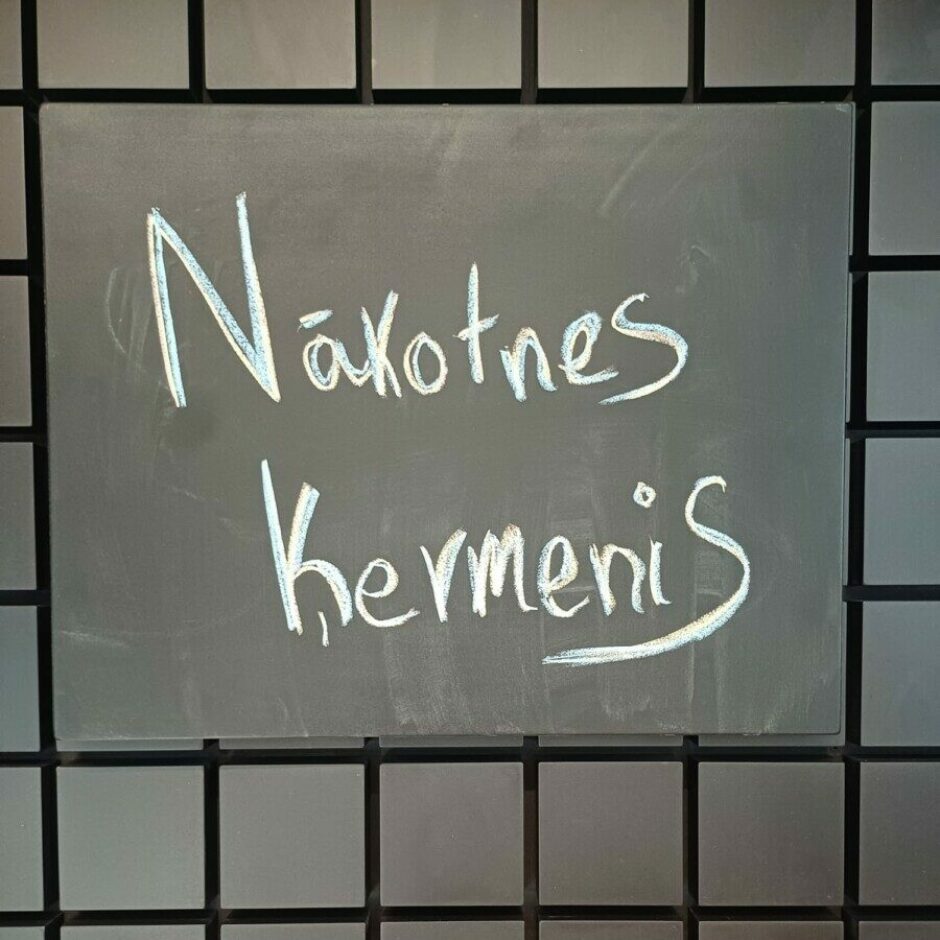 Nākotnes
Ķermenis